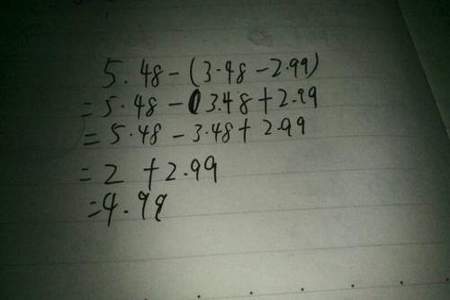 5.48-(3.48-2.99)
=5.48-03.48+2.99
=5.48-3.48+2.99
=2+2.99
=4.99